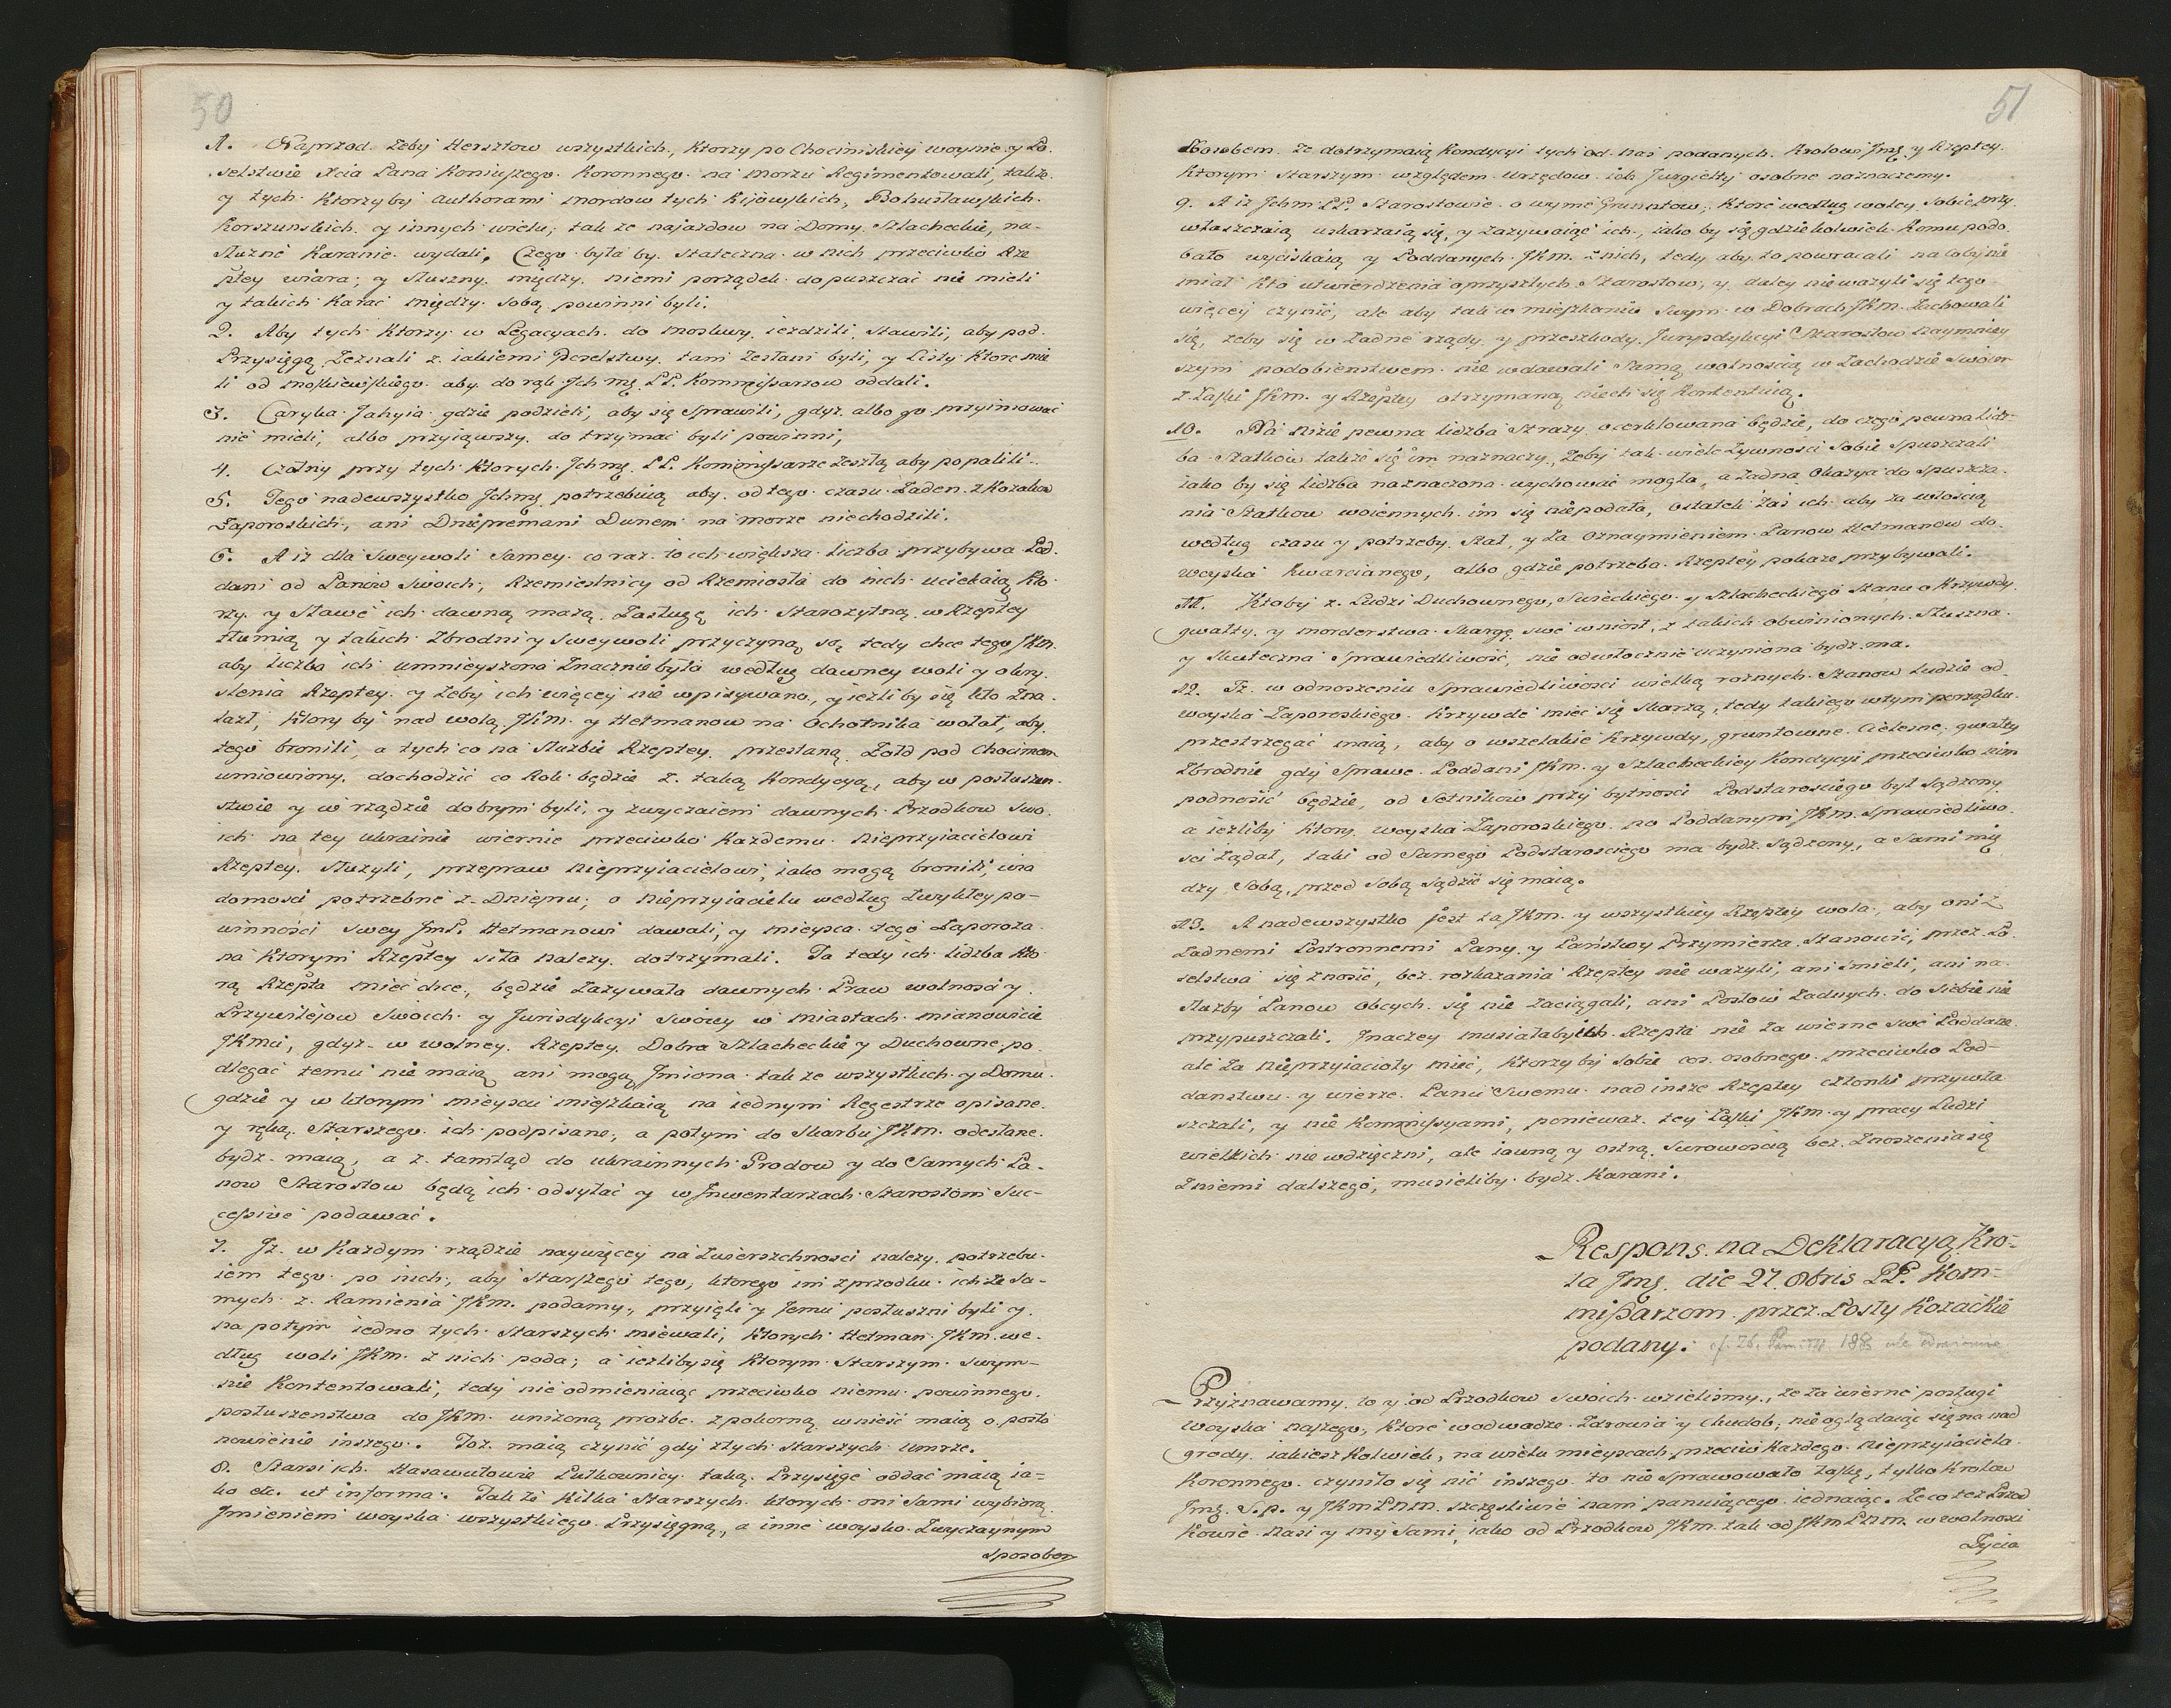 50
1. Naprzod. Zeby Hersztow wszystkich, ktorzy po Chocimskiey woynie y Po-
selstwie Xcia Pana Koniuszego Koronnego na morzu Regimentowali, także
y tych ktorzyby authorami mordow tych Kijowskich, Bohusławskich
Korszunskich y innych wielu; także najazdow na Domy Szlacheckie, na
słuzne Karanie wydali. Czego była by Stateczna w nich przeciwko Rze
ptey wiara; y słuszny między niemi porządek dopuszczać nie mieli
y takich Karać między sobą powinni byli.
2. Aby tych ktorzy w Legacyach do Moskwy iezdzili, stawili, aby pod
Przysięgą Zeznali z iakiemi Poselstwy tam Zesłani byli, y Listy ktore mie
li od Moskiewskiego aby do rąk Ich mę PP. Kommissarzow oddali.
3. Caryka Jahyia gdzie podzieli, aby się Sprawili, gdyz albo go przyimować
nie mieli, albo przyiąwszy do trzymać byli powinni,
4. Czołny przy tych ktorych Ichmę PP. Kommissarze Zeszlą aby popalili.
5. Tego nadewszystko Ichmę potrzebuią aby od tego czasu Zaden z Kozakow
Zaporoskich, ani Dnieprem ani Dunem na morze niechodzili.
6. A iz dla Sweywoli Samey co raz to ich większa liczba przybywa Pod-
dani od Panow Swoich, Rzemieslnicy od Rzemiosła do nich uciekaią kto
rzy y Sławę ich dawną mażą Zasługę ich Starozytną w Rzeptey
tłumią y takich Zbrodni y Sweywoli przyczyną są, tedy chce tego JKm.
aby liczba ich umnieyszona Znacznie była według dawney woli y okry
slenia Rzeptey y Zeby ich więcey nie wpisywano, y iezliby się kto Zna-
lazł, ktory by nad wolą JKm. y Hetmanow na Ochotnika wołał, aby
tego bronili, a tych co na Służbie Rzeptey przestaną Zołd pod Chocimem
umowiony, dochodzić co Rok będzie z taką Kondycyą, aby w posłuszen-
stwie y w rządzie dobrym byli, y zwyczaiem dawnych Przodkow swo
ich na tey Ukrainie wiernie przeciwko Kazdemu Nieprzyiacielowi
Rzeptey Służyli, przepraw Nieprzyiacielowi, iako mogą bronili, wia
domosci potrzebne z Dniepru, o Nieprzyiacielu według Zwykłey po-
winności swey JmP. Hetmanowi dawali, y mieysca tego Zaporoza
na ktorym Rzeptey siła należy dotrzymali. Ta tedy ich Liczba kto
rą Rzepta mieć chce, będzie Zażywała dawnych Praw wolnosci y
Przywilejow Swoich y Jurisdykcyi Swoiey w miastach mianowicie
JKmci, gdyz w wolney Rzeptey Dobra Szlacheckie y Duchowne po
dlegać temu nie maią ani mogą Jmiona także wszystkich y Domu
gdzie y w ktorym mieyscu mieszkaią na iednym Regestrze opisane
y ręką Starszego ich podpisane, a potym do Skarbu JKm. odesłane
bydz maią, a z tamtąd do ukrainnych Grodow y do Samych Pa-
now Starostow będą ich odsyłać y w Inwentarzach Starostom Suc-
cessive podawać.
7. Iz w Kazdym rządzie naywięcey na Zwierzchnosci nalezy, potrzebu-
iem tego po nich, aby Starszego tego, ktorego im zprzodku ich ze Sa-
mych z Ramienia JKm. podamy, przyięli y Jemu posłuszni byli y
napotym iedno tych Starszych miewali, ktorych Hetman JKm. we-
dług woli JKm. z nich poda; a iezliby się ktorym Starszym swym
nie Kontentowali, tedy nie odmieniaiąc przeciwko niemu powinnego
posłuszenstwa do JKm. unizoną prozbę z pokorną wnieść maią o posta
nowienie inszego. Toz maią czynić gdy z tych Starszych umrze.
8. Starsi ich Hasawułowie Pułkownicy taką Przysięgę oddać maią ia-
ko etc. ut in forma. Takze Kilka Starszych ktorych oni Sami wybiorą
Jmieniem woyska wszystkiego Przysięgną, a inne woysko Zwyczaynym
Sposobem
51
Sposobem ze dotrzymaią Kondycyi tych od nas podanych Krolowi Jmę y Rzeptey
ktorym Starszym względem Urzędow ich Jurgielty osobne naznaczemy.
9. A iz Ichm PP. Starostowie o wymę Gruntow, ktore według woley sobie przy
właszczaią uskarzaią się, y Zazywaiąc ich, iako by się gdziekolwiek Komu podo-
bało wyciskaią y Poddanych JKm. z nich, tedy aby to powracali na coby nie
miał kto utwierdzenia oprzyszłych Starostow, y daley nie wazyli się tego
więcey czynić, ale aby tak w mieszkaniu Swym w Dobrach JKm. Zachowali
się, zeby się w Zadne rządy y przeszkody Jurysdykcyi Starostow naymniey
szym podobienstwem nie wdawali Samą wolnoscią w Zachodzie Swoim
z Łaski JKm. y Rzeptey otrzymaną niech się Kontentuią.
10. Na Nizie pewna liczba Strazy ocerklowana będzie, do czego pewna licz-
ba Statkow takze się im naznaczy, Zeby tak wiele Zywnosci Sobie Spuszczali
iako by się liczba naznaczona wychować mogła, a Zadna Okazya do spuszcza-
nia Statkow woiennych im się niepodała, Ostatek Zas ich aby za włoscią
według czasu y potrzeby Stał, y za oznaymieniem Panow Hetmanow do
woyska Kwarcianego, albo gdzie potrzeba Rzeptey pokaze przybywali.
11. Ktoby z Ludzi Duchownego, Swieckiego y Szlacheckiego Stanu o Krzywdy
gwałty y morderstwa Skargę swę wniosł, z takich obwinionych Słuszna
y Skuteczna Sprawiedliwość, nie odwłocznie uczyniona bydz ma.
12. Iz w odnoszeniu Sprawiedliwosci wielką roznych Stanow Ludzie od
woyska Zaporoskiego Krzywdę mieć się Skarzą, tedy takiego wtym porządku
przestrzegać maią, aby o wszelakie Krzywdy, gruntowne Cielesne, gwałty
Zbrodnie gdy Sprawę Poddani JKm. y Szlacheckiey Kondycyi przeciwko nim
podnosić będzie, od Setnikow przy bytnosci Podstarosciego był Sądzony
a iezliby ktory woyska Zaporoskiego na Poddanym JKm. Sprawiedliwo
sci Ządał, taki od Samego Podstarosciego ma bydz Sądzony, a Sami mię
dzy Sobą, przed Sobą sądzić się maią.
13. A nadewszystko jest ta JKm. y wszystkiey Rzeptey wola, aby oni z
Zadnemi Postronnemi Pany y Państwy Przymierza Stanowić, przez Po-
selstwa się znosić, bez rozkazania Rzeptey nie wazyli, ani śmieli, ani na
słuzby Panow Obcych się nie Zaciągali, ani Posłow Zadnych do Siebie nie
przypuszczali. Inaczey musiałaby ich Rzepta nie za wierne swe Poddane
ale za Nieprzyiacioły mieć, ktorzy by sobie cos osobnego przeciwko Pod-
danstwu y wierze Panu Swemu nad insze Rzeptey członki przywła
szczali, y nie Kommissyami, poniewaz tey Łaski JKm. y pracy Ludzi
wielkich nie wdzięczni, ale iawną y ostrą Surowoscią bez Znoszenia się
Zniemi dalszego, musieliby bydz Karani.
Respons na Deklaracyą Kro-
la Jmę. die 27. 8bris PP. Kom-
missarzom przez Posły Kozackie
podany.
Przyznawamy to y od Przodkow Swoich wzieliśmy, ze za wierne posługi
woyska naszego, ktore wodwadze Zdrowia y chudob, nie oglądaiąc się na nad
grody iakiesz Kolwiek, na wielu mieyscach, przeciw Kazdego Nieprzyiaciela
Koronnego czyniło się nic inszego to nie Sprawowało Łaskę, tylko Krolow
Jmę S.p. y JKm Pnm. szczęśliwie nam panuiącego iednaiąc. Zeco tez Przod
kowie nasi y my Sami, iako od Przodkow JKm. tak od JKm Pnm. w wolnosci
Zycia